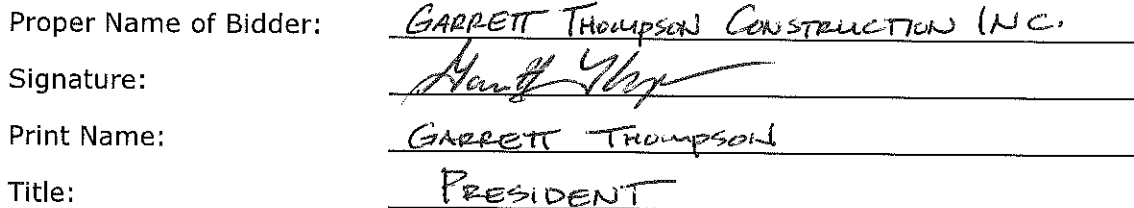 Proper Name of Bidder: GARRETT THOMPSON CONSTRUCTION INC.
Signature: Garrett Thompson
Print Name: GARRETT THOMPSON
Title: PRESIDENT